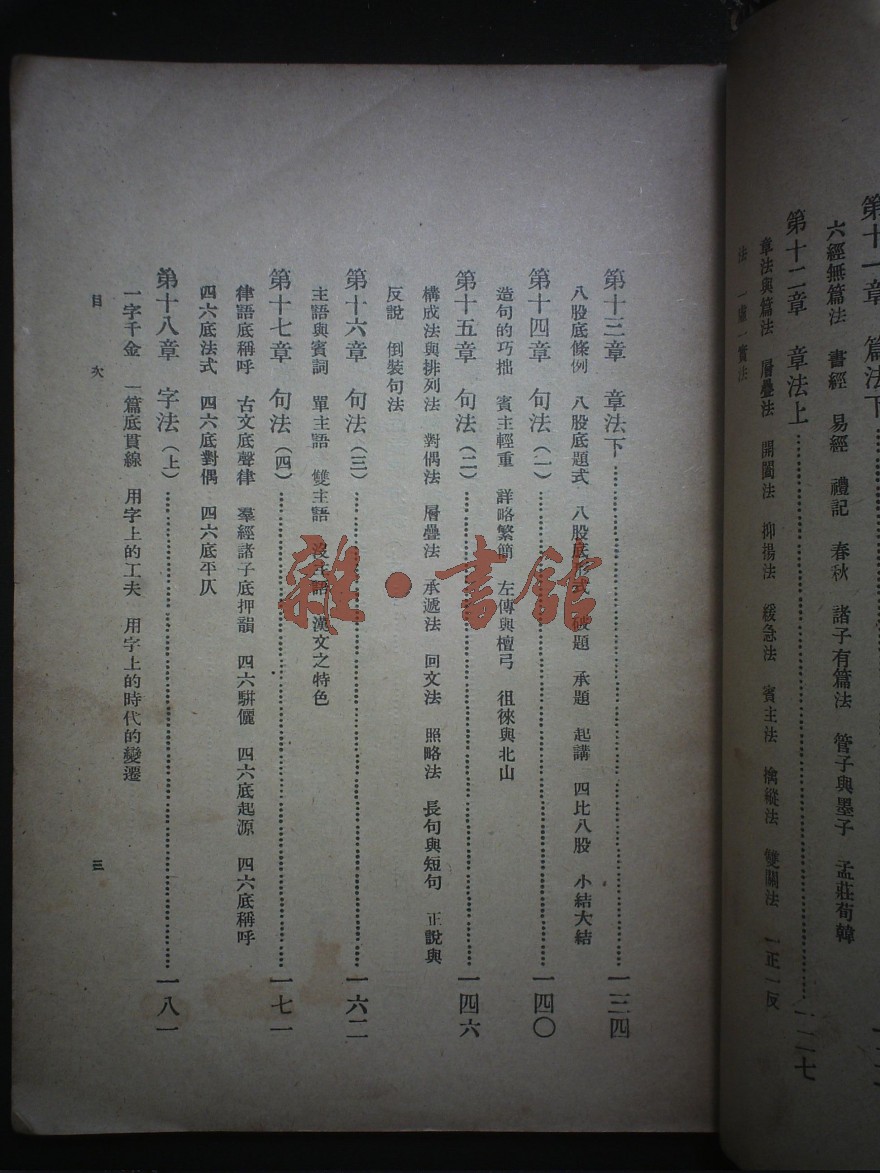 第十一章 篇法下
六經無篇法 書經 易經 禮記 春秋 諸子有篇法 管子與墨子 孟莊荀韓
第十二章 章法上……一二七
章法與篇法 層疊法 開闔法 抑揚法 緩急法 賓主法 擒縱法 雙關法 一正一反
法 一虛一實法
第十三章 章法下……一三四
八股底條例 八股底題式 八股底形式 破題 承題 起講 四比八股 小結大結
第十四章 句法(一)……一四〇
造句的巧拙 賓主輕重 詳略繁簡 左傳與檀弓 徂徠與北山
第十五章 句法(二)……一四六
構成法與排列法 對偶法 層疊法 承遞法 回文法 照略法 長句與短句 正說與
反說 倒裝句法
第十六章 句法(三)……一六二
主語與賓詞 單主語 雙主語 沒主語 漢文之特色
第十七章 句法(四)……一七一
律語底稱呼 古文底聲律 羣經諸子底押韻 四六駢儷 四六底起源 四六底稱呼
四六底法式 四六底對偶 四六底平仄
第十八章 字法(上)……一八一
一字千金 一篇底貫線 用字上的工夫 用字上的時代的變遷
目次 三
雜·書館